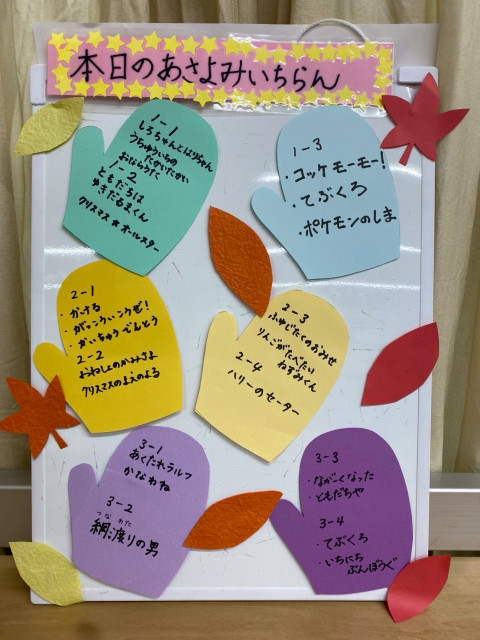 本日のあさよみいちらん
1-1
しろちゃんとはりちゃん
うちゅういちの
たかいたかい
おならうた
1-2
ともだちは
ゆきだるまくん
クリスマス★オールスター
1-3
・コッケモーモー!
・てぶくろ
・ポケモンのしま
2-1
・かーする
・がっこういこうぜ!
・かいちゅうでんとう
2-2
おねしょのかみさま
クリスマスのまえのよる
2-3
ふゆじたくのおみせ
りんごがたべたい
ねずみくん
2-4
ハリーのセーター
3-1
あくたれラルフ
かなわね
3-2
つな わた
綱渡りの男
3-3
・ながーくなった
・ともだちや
3-4
・てぶくろ
・いちにち
ぶんぼうぐ